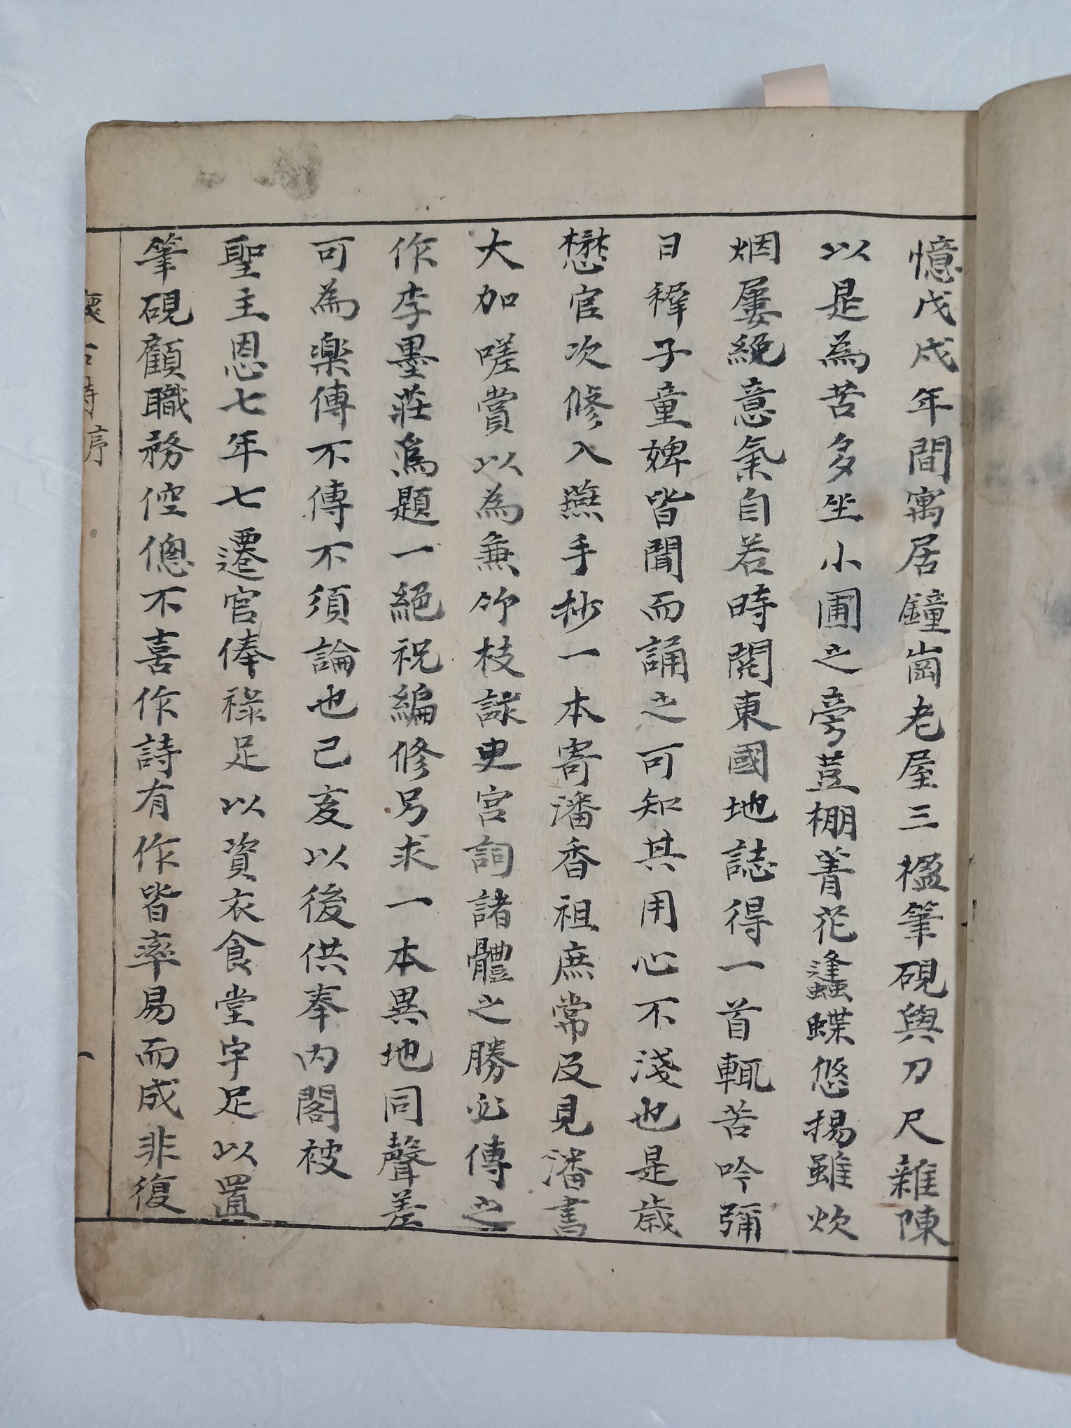 憶戊戌年間寓居鐘崗老屋三楹筆硯與刀尺雜陳
以是為苦多坐小圃之旁荳棚菁花蠭蝶悠揚雖炊
烟屢絕意氣自若時閱東國地誌得一首輒苦吟彌
日稺子童婢皆聞而誦之可知其用心不淺也是歲
懋官次修入燕手抄一本寄潘香祖庶常及見潘書
大加嗟賞以為兼竹枝詠史宮詞諸體之勝必傳之
作李墨莊爲題一絕祝編修另求一本異地同聲差
可為樂傳不傳不須論也己亥以後供奉內閣被
聖主恩七年七遷官俸祿足以資衣食堂宇足以置
筆硯顧職務倥傯不喜作詩有作皆率易而成非復
懷古詩序 一